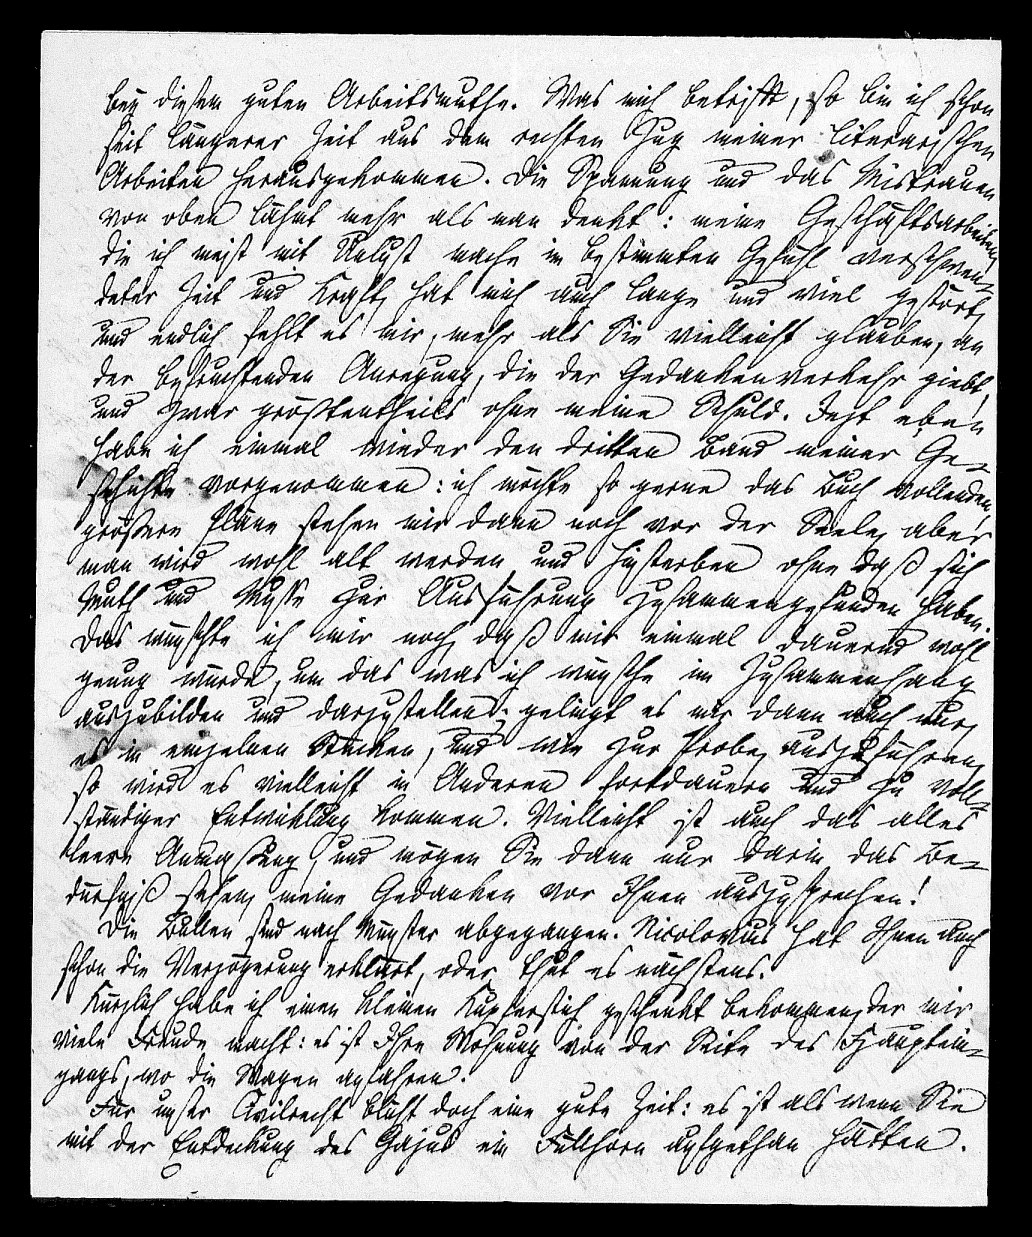 bey diesem guten Arbeitsmuthe. Was mich betrifft, so bin ich schon
seit längerer Zeit aus dem rechten Zug meiner literarischen
Arbeiten herausgekommen. Die Spannung und das Mistrauen
von oben lähmt mehr als man denkt: meine Geschäftsarbeiten
die ich meist mit Unlust mache im bestimmten Gefühl verschwen-
deter Zeit und Kraft, hat mich auch lange und viel gestört,
und endlich fehlt es mir, mehr als Sie vielleicht glauben, an
der befruchtenden Anregung, die der Gedankenverkehr giebt,
und zwar größtentheils ohne meine Schuld. Jezt eben
habe ich einmal wieder den dritten Band meiner Ge-
schichte vorgenommen: ich möchte so gerne das Buch vollenden,
größere Plane stehen mir dann noch vor der Seele, aber
man wird wohl alt werden und hinsterben ohne daß sich
Muth und Muße zur Ausführung zusammengefunden haben.
Das wünschte ich mir noch, daß mir einmal dauernd wohl
genug würde, um das was ich wünsche im Zusammenhang
auszubilden und darzustellen; gelingt es mir dann auch nur,
es in einzelnen Stücken, und wie zur Probe, auszuführen,
so wird es vielleicht in Anderen fortdauern und zu voll-
ständiger Entwicklung kommen. Vielleicht ist auch das alles
leere Anmaßung, und mögen Sie dann nur darin das Be-
dürfniß sehen, meine Gedanken vor Ihnen auszusprechen!
Die Bullen sind nach Münster abgegangen. Nicolovius hat Ihnen auch
schon die Verzögerung erklärt, oder thut es nächstens.
Kürzlich habe ich einen kleinen Kupferstich geschenkt bekommen, der mir
viele Freude macht: es ist Ihre Wohnung von der Seite des Haupteín-
gangs, wo die Wagen anfahren.
Für unser Civilrecht blüht doch eine gute Zeit: es ist als wenn Sie
mit der Entdeckung des Gajus ein Füllhorn aufgethan hätten.